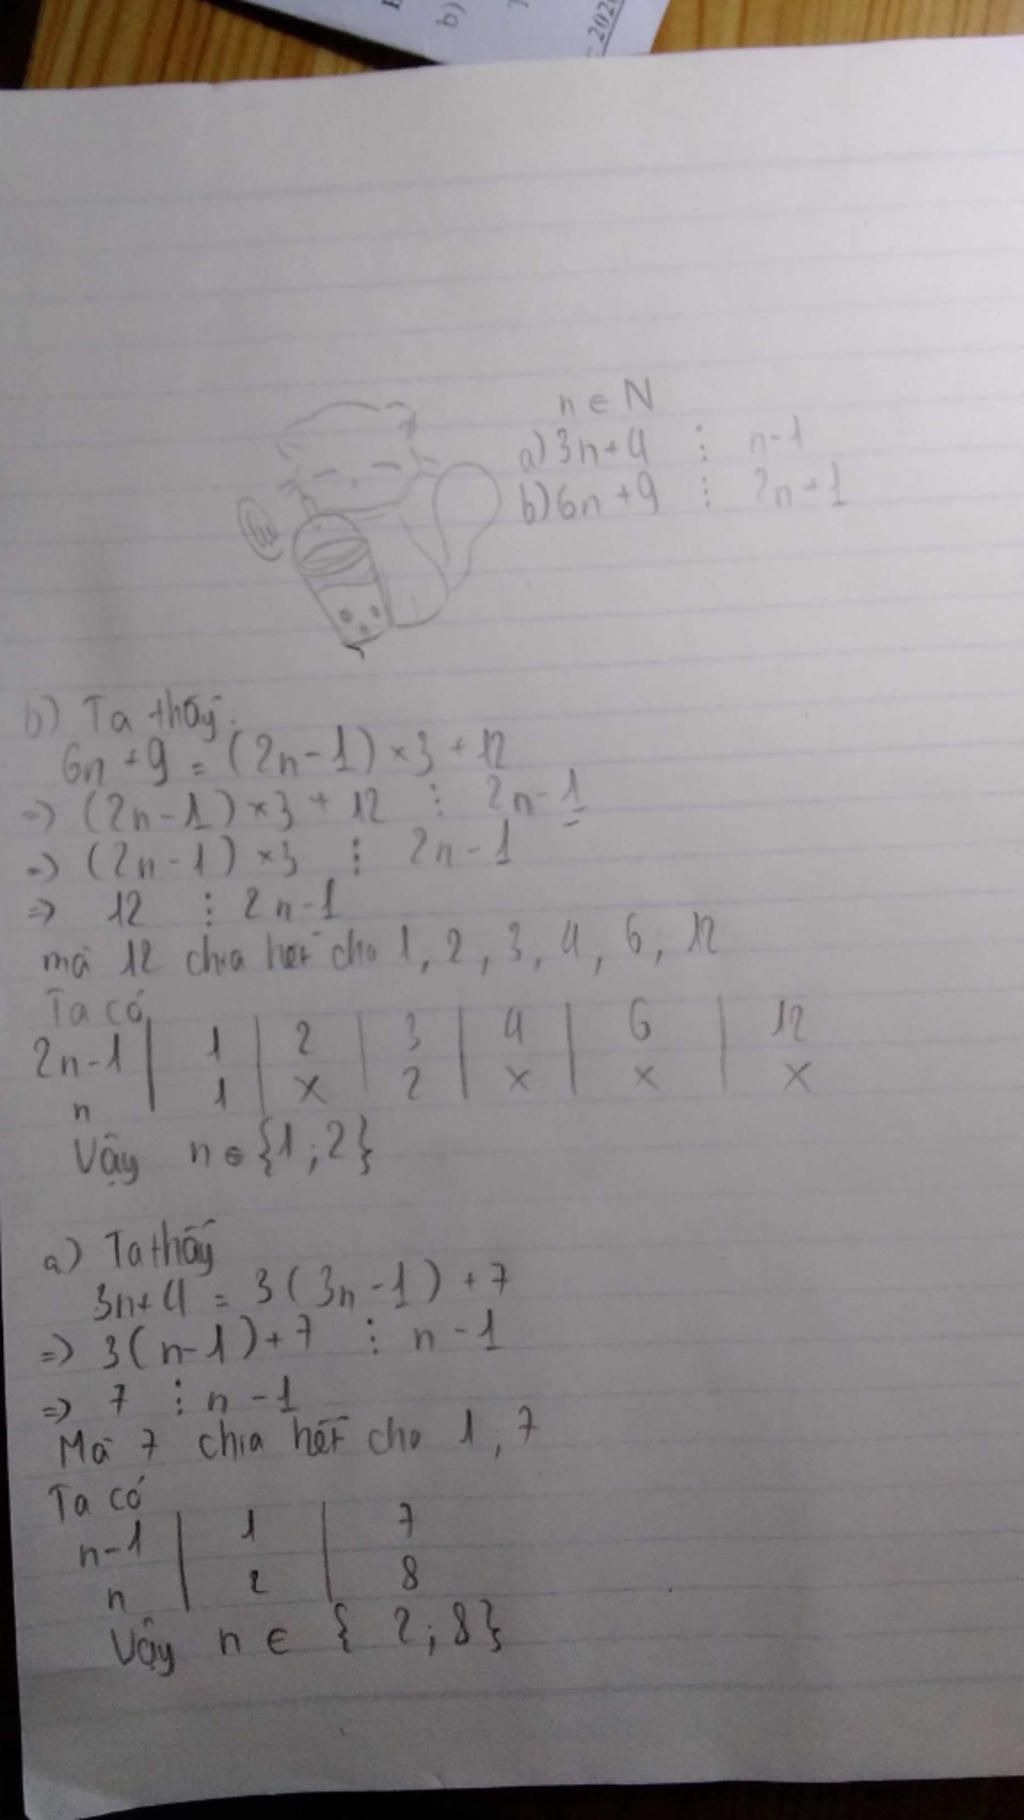 b)
202
n ∈ N
a) 3n+4 ⋮ n-1
b) 6n+9 ⋮ 2n+1
b) Ta thấy:
6n+9 = (2n-1)×3+12
=> (2n-1)×3+12 ⋮ 2n-1
=> (2n-1)×3 ⋮ 2n-1
=> 12 ⋮ 2n-1
mà 12 chia hết cho 1, 2, 3, 4, 6, 12
Ta có
2n-1 | 1 | 2 | 3 | 4 | 6 | 12
n | 1 | × | 2 | × | × | ×
Vậy n ∈ {1;2}
a) Ta thấy
3n+4 = 3(3n-1)+7
=> 3(n-1)+7 ⋮ n-1
=> 7 ⋮ n-1
Mà 7 chia hết cho 1, 7
Ta có
n-1 | 1 | 7
n | 2 | 8
Vậy n ∈ { 2;8}